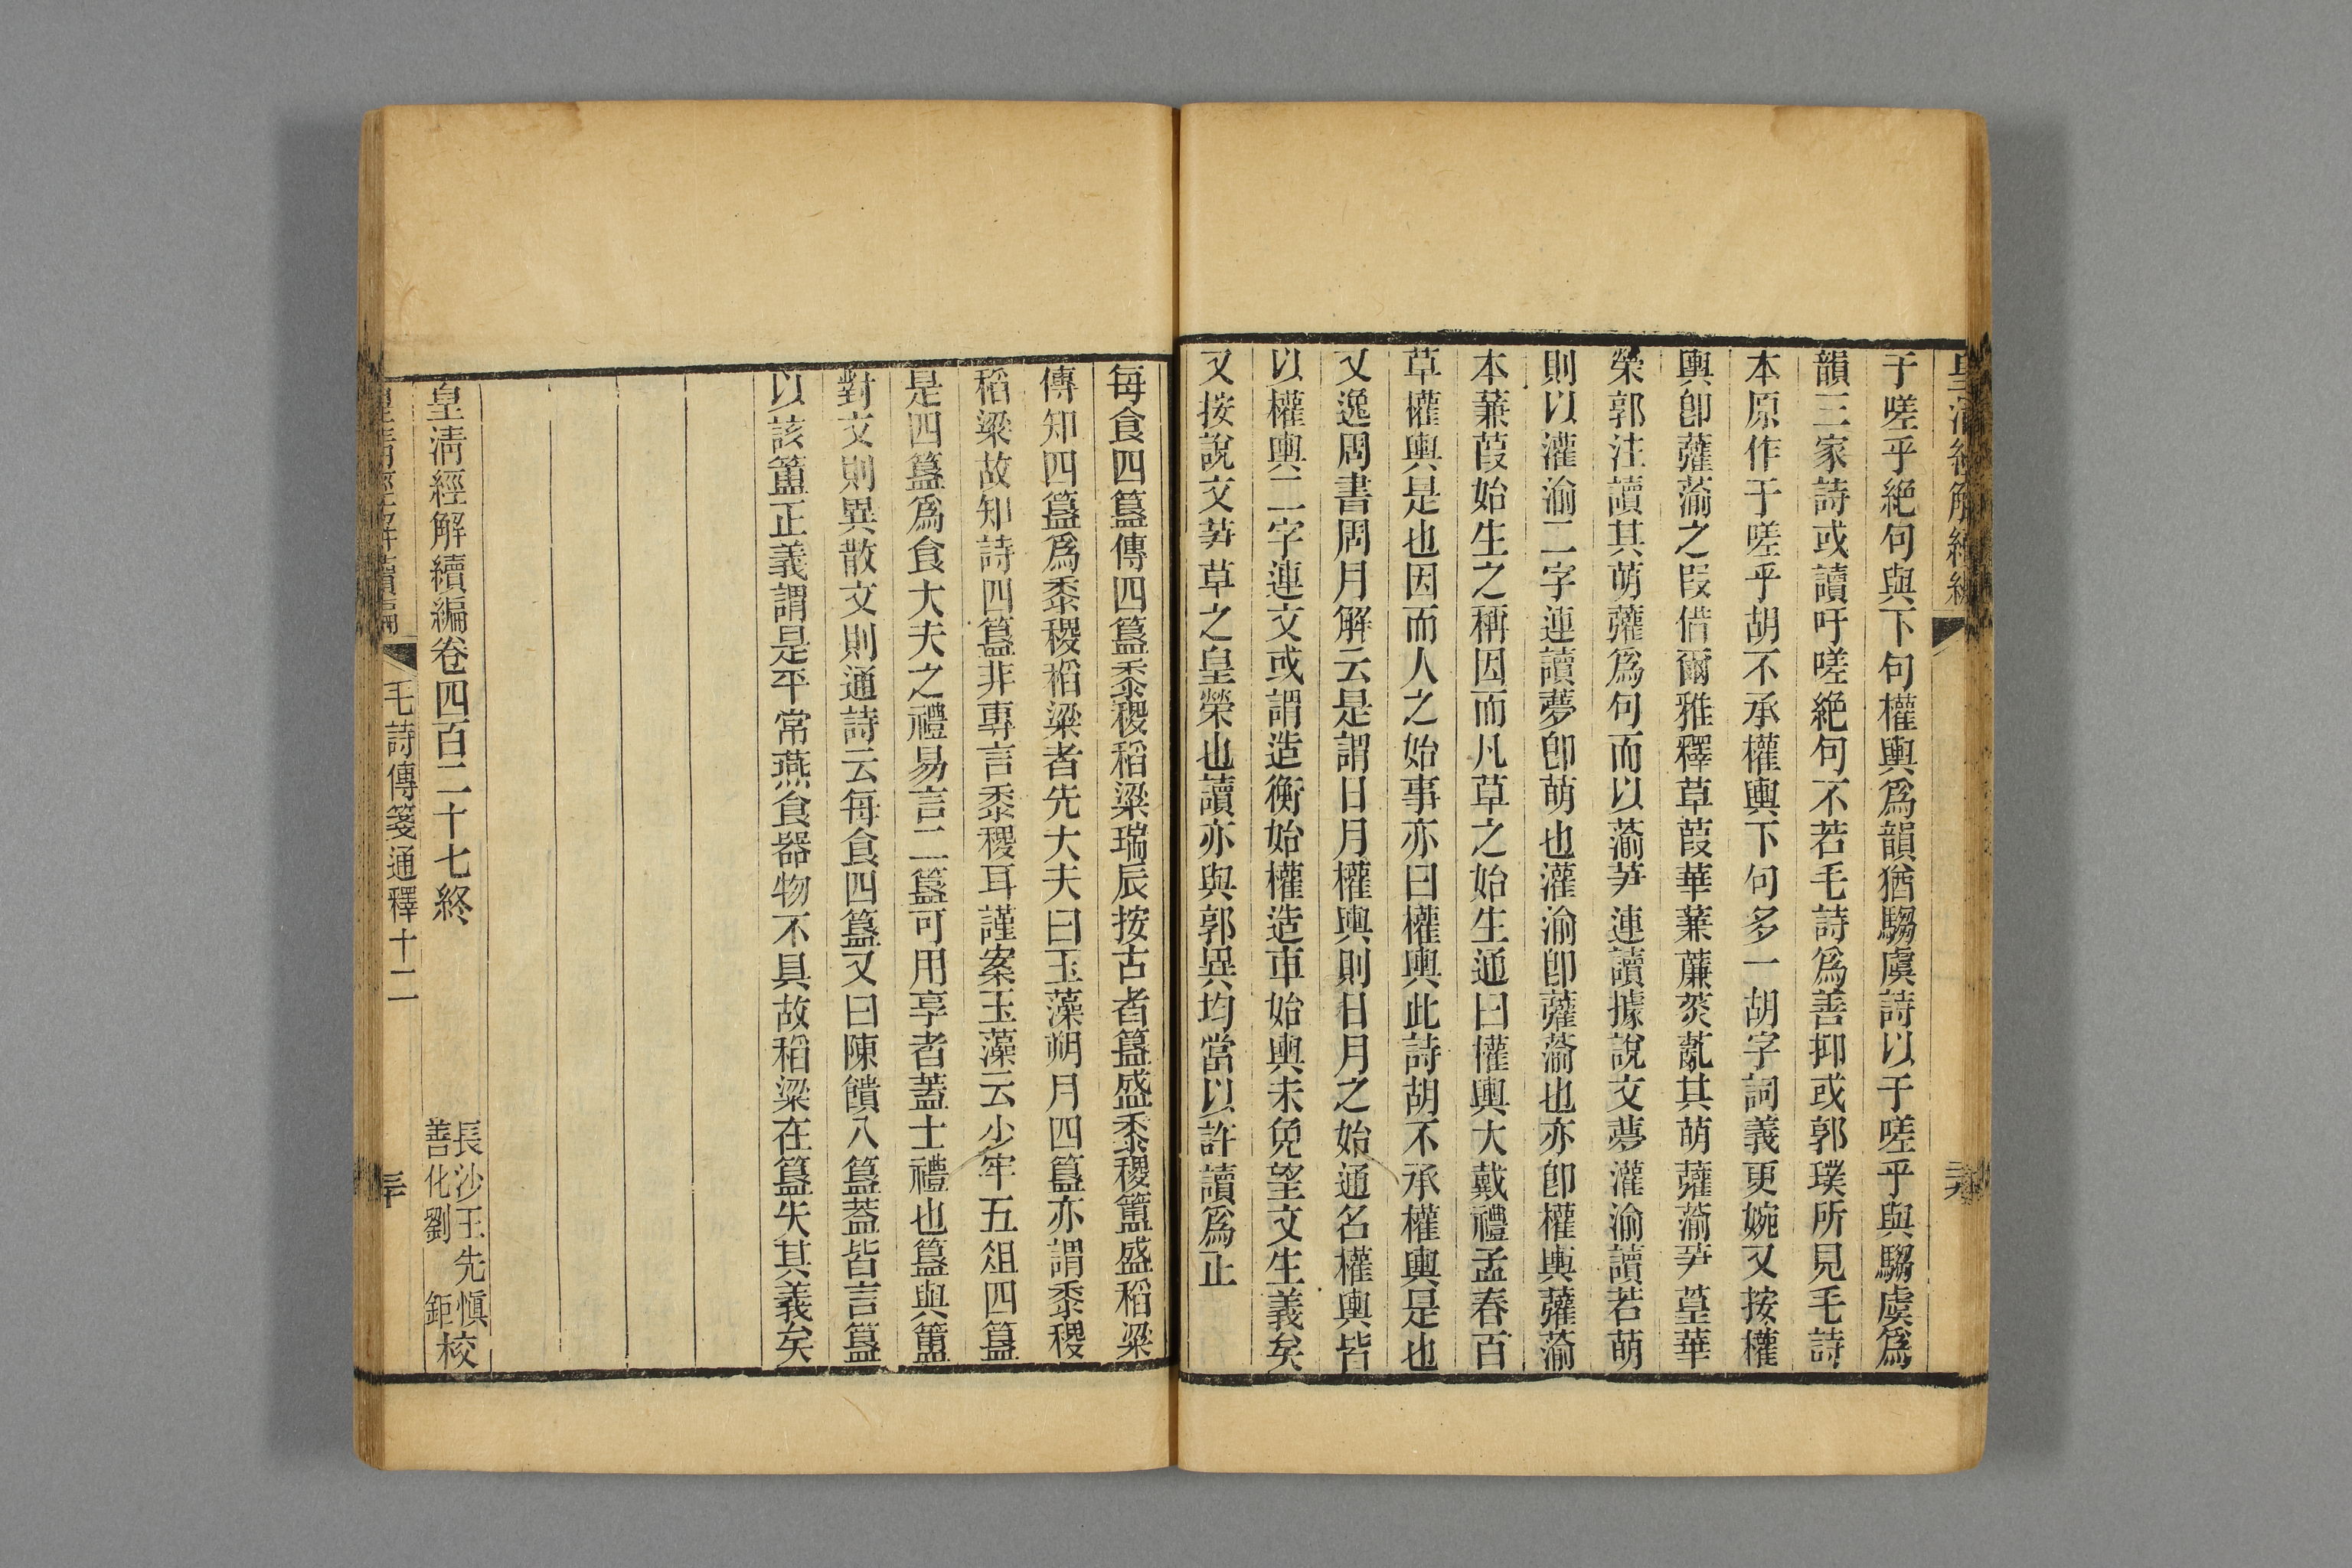 皇清經解續編
于嗟乎絕句與下句權輿爲韻猶騶虞詩以于嗟乎與騶虞爲
韻三家詩或讀吁嗟絕句不若毛詩爲善抑或郭璞所見毛詩
本原作于嗟乎胡不承權輿下句多一胡字詞義更婉又按權
輿卽虇蕍之叚借爾雅釋草葭華蒹薕菼薍其萌虇蕍芛葟華
榮郭注讀其萌虇爲句而以蕍芛連讀據說文夢灌渝讀若萌
則以灌渝二字連讀夢卽萌也灌渝卽虇蕍也亦卽權輿虇蕍
本蒹葭始生之稱因而凡草之始生通曰權輿大戴禮孟春百
草權輿是也因而人之始事亦曰權輿此詩胡不承權輿是也
又逸周書周月解云是謂日月權輿則日月之始通名權輿皆
以權輿二字連文或謂造衡始權造車始輿未免望文生義矣
又按說文芛草之皇榮也讀亦與郭異均當以許讀爲正
每食四簋傳四簋黍稷稻粱瑞辰按古者簋盛黍稷簠盛稻粱
傳知四簋爲黍稷稻粱者先大夫曰玉藻朔月四簋亦謂黍稷
稻粱故知詩四簋非專言黍稷耳謹案玉藻云少牢五俎四簋
是四簋爲食大夫之禮易言二簋可用享者蓋士禮也簋與簠
對文則異散文則通詩云每食四簋又曰陳饋八簋蓋皆言簋
以該簠正義謂是平常燕食器物不具故稻粱在簋失其義矣
皇清經解續編卷四百二十七終
長沙王先愼
善化劉鉅校
皇清經解續編
毛詩傳箋通釋十二
三十